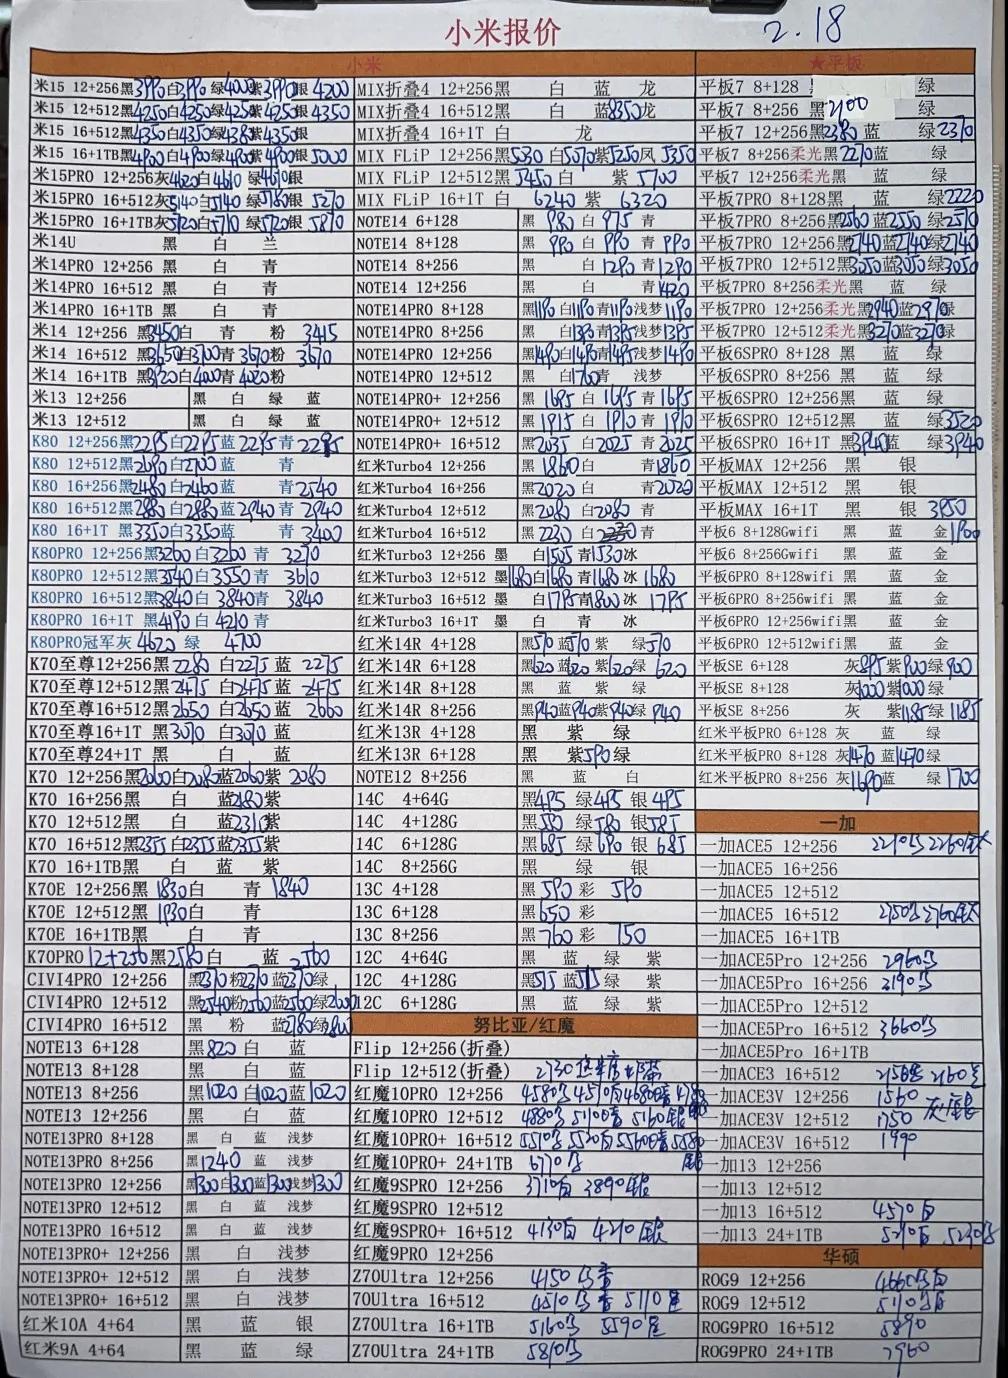 小米报价
2.18
小米
米15 12+256黑3990白3990绿4000紫3990银4200
米15 12+512黑4250白4250绿4250紫4250银4350
米15 16+512黑4350白4350绿4380紫4350银
米15 16+1TB黑4900白4900绿4900紫4900银5000
米15PRO 12+256灰4620白4610绿4610银
米15PRO 16+512灰5140白5140绿5180银5270
米15PRO 16+1TB灰5720白5710绿5720银5870
米14U 黑 白 兰
米14PRO 12+256 黑 白 青
米14PRO 16+512 黑 白 青
米14PRO 16+1TB 黑 白 青
米14 12+256 黑3450白 青 粉 3445
米14 16+512 黑3650白3700青3670粉3670
米14 16+1TB 黑3920白4000青4020粉
米13 12+256 黑 白 绿 蓝
米13 12+512 黑 白 绿 蓝
K80 12+256黑2295白2295蓝2295青2295
K80 12+512黑2690白2700蓝 青
K80 16+256黑2480白2460蓝 青2540
K80 16+512黑2880白2880蓝2940青2940
K80 16+1T 黑3350白3350蓝 青3400
K80PRO 12+256黑3260白3260青3270
K80PRO 12+512黑3540白3550青3610
K80PRO 16+512黑3840白3840青3840
K80PRO 16+1T 黑4190白4210青
K80PRO冠军灰4620绿4700
K70至尊12+256黑2280白2275蓝2275
K70至尊12+512黑2475白2475蓝2475
K70至尊16+512黑2650白2650蓝2660
K70至尊16+1T 黑3070白3070蓝
K70至尊24+1T 黑 白 蓝
K70 12+256黑2060白2080蓝2060紫2080
K70 16+256黑 白 蓝2180紫
K70 12+512黑 白 蓝2310紫
K70 16+512黑2355白2355蓝2355紫
K70 16+1TB黑 白 蓝 紫
K70E 12+256黑1830白 青1840
K70E 12+512黑1930白 青
K70E 16+1TB黑 白 青
K70PRO 12+256黑2580白 蓝2560
CIVI4PRO 12+256 黑2370粉2370蓝2370绿
CIVI4PRO 12+512 黑2540粉2560蓝2560绿2600
CIVI4PRO 16+512 黑 粉 蓝2780绿2800
NOTE13 6+128 黑820白 蓝
NOTE13 8+128 黑 白 蓝
NOTE13 8+256 黑1020白1020蓝1020
NOTE13 12+256 黑 白 蓝
NOTE13PRO 8+128 黑 白 蓝 浅梦
NOTE13PRO 8+256 黑1240 蓝 浅梦
NOTE13PRO 12+256 黑1300白1300蓝1300浅梦1300
NOTE13PRO 12+512 黑 白 蓝 浅梦
NOTE13PRO 16+512 黑 白 蓝 浅梦
NOTE13PRO+ 12+256 黑 白 浅梦
NOTE13PRO+ 12+512 黑 白 浅梦
NOTE13PRO+ 16+512 黑 白 浅梦
红米10A 4+64 黑 蓝 银
红米9A 4+64 黑 蓝 绿
MIX折叠4 12+256黑 白 蓝 龙
MIX折叠4 16+512黑 白 蓝8350龙
MIX折叠4 16+1T 白 龙
MIX FLiP 12+256黑5030白5070紫5250凤5350
MIX FLiP 12+512黑5450白 紫5700
MIX FLiP 16+1T 白6240紫6320
NOTE14 6+128 黑980白975青
NOTE14 8+128 黑990白990青990
NOTE14 8+256 黑 白1290青1290
NOTE14 12+256 黑 白 青1420
NOTE14PRO 8+128 黑1190白1190青1190浅梦1190
NOTE14PRO 8+256 黑 白1395青1395浅梦1395
NOTE14PRO 12+256 黑1490白1490青1495浅梦1490
NOTE14PRO 12+512 黑 白1760青 浅梦
NOTE14PRO+ 12+256 黑1695白1695青1695
NOTE14PRO+ 12+512 黑1915白1910青1910
NOTE14PRO+ 16+512 黑2035白2025青2025
红米Turbo4 12+256 黑1860白 青1860
红米Turbo4 16+256 黑2020白 青2020
红米Turbo4 12+512 黑2080白2080青
红米Turbo4 16+512 黑2230白2230青
红米Turbo3 12+256 墨 白1505青1530冰
红米Turbo3 12+512 墨1680白1680青1680冰1680
红米Turbo3 16+512 墨 白1795青1800冰1795
红米Turbo3 16+1T 墨 白 青 冰
红米14R 4+128 黑570蓝570紫 绿570
红米14R 6+128 黑620蓝620紫620绿620
红米14R 8+128 黑 蓝 紫 绿
红米14R 8+256 黑940蓝940紫940绿940
红米13R 4+128 黑 紫 绿
红米13R 6+128 黑 紫590绿
NOTE12 8+256 黑 蓝 白
14C 4+64G 黑495绿495银495
14C 4+128G 黑580绿580银585
14C 6+128G 黑685绿690银685
14C 8+256G 黑 绿 银
13C 4+128 黑590彩590
13C 6+128 黑650彩
13C 8+256 黑760彩750
12C 4+64G 黑 蓝 绿 紫
12C 4+128G 黑515蓝515绿 紫
12C 6+128G 黑 蓝 绿 紫
努比亚/红魔
Flip 12+256(折叠)
Flip 12+512(折叠) 2730
红魔10PRO 12+256 4580
红魔10PRO 12+512 4880 5100 5160银
红魔10PRO+ 16+512 5510 5530
红魔10PRO+ 24+1TB 6770
红魔9SPRO 12+256 3710白 3890银
红魔9SPRO 12+512
红魔9SPRO+ 16+512 4130白 4210银
红魔9PRO 12+256
Z70Ultra 12+256 4150
70Ultra 16+512 4510 5110
Z70Ultra 16+1TB 5160 5590
Z70Ultra 24+1TB 5810
★平板
平板7 8+128 绿
平板7 8+256 黑2100 绿
平板7 12+256黑2380蓝 绿2370
平板7 8+256柔光黑2270蓝 绿
平板7 12+256柔光黑 蓝 绿
平板7PRO 8+128黑 蓝 绿2220
平板7PRO 8+256黑2560蓝2550绿2570
平板7PRO 12+256黑2740蓝2740绿2740
平板7PRO 12+512黑3050蓝3050绿3050
平板7PRO 8+256柔光黑 蓝 绿
平板7PRO 12+256柔光黑2940蓝2970绿
平板7PRO 12+512柔光黑3270蓝3270绿
平板6SPRO 8+128 黑 蓝 绿
平板6SPRO 8+256 黑 蓝 绿
平板6SPRO 12+256 黑 蓝 绿
平板6SPRO 12+512 黑 蓝 绿3520
平板6SPRO 16+1T 黑3940蓝 绿3940
平板MAX 12+256 黑 银
平板MAX 12+512 黑 银
平板MAX 16+1T 黑 银3950
平板6 8+128Gwifi 黑 蓝 金1900
平板6 8+256Gwifi 黑 蓝 金
平板6PRO 8+128wifi 黑 蓝 金
平板6PRO 8+256wifi 黑 蓝 金
平板6PRO 12+256wifi 黑 蓝 金
平板6PRO 12+512wifi 黑 蓝 金
平板SE 6+128 灰895紫900绿900
平板SE 8+128 灰1000紫1000绿
平板SE 8+256 灰 紫1185绿1185
红米平板PRO 6+128 灰 蓝 绿
红米平板PRO 8+128 灰1470蓝1470绿
红米平板PRO 8+256 灰1690蓝 绿1700
一加
一加ACE5 12+256 2210 2260
一加ACE5 16+256
一加ACE5 12+512
一加ACE5 16+512 2750 2760
一加ACE5 16+1TB
一加ACE5Pro 12+256 2960
一加ACE5Pro 16+256 3190
一加ACE5Pro 12+512
一加ACE5Pro 16+512 3660
一加ACE5Pro 16+1TB
一加ACE3 16+512 2160
一加ACE3V 12+256 1560
一加ACE3V 12+512 1750 灰
一加ACE3V 16+512 1990
一加13 12+256
一加13 12+512
一加13 16+512 4570白
一加13 24+1TB 5210白
华硕
ROG9 12+256 4660
ROG9 12+512 5110
ROG9PRO 16+512 5890
ROG9PRO 24+1TB 7960